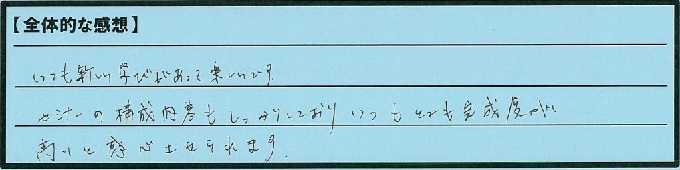 【全体的な感想】
いつも新しい学びがあって楽しいです。
セミナーの構成内容もしっかりしており いつもとても完成度が
高いと感心させられます。